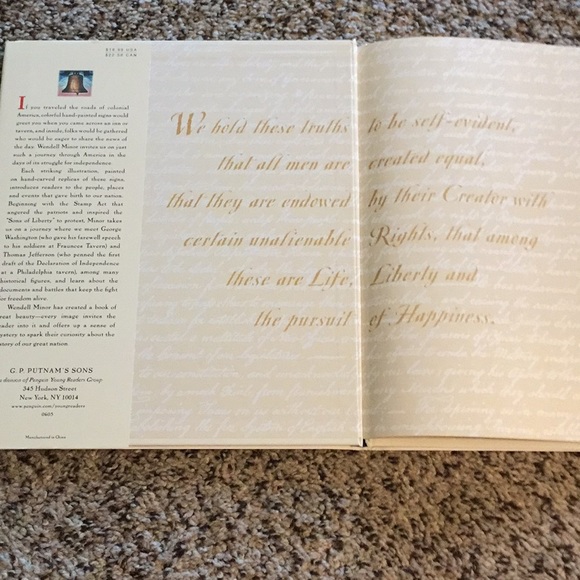 $18.99 USA
If you traveled the roads of colonial
America, colorful hand-painted signs would
greet you when you came across an inn or
tavern, and inside, folks would be gathered
who would be eager to share the news of
the day. Wendell Minor invites us on just
such a journey through America in the
days of its struggle for independence.
Each striking illustration, painted
on hand-carved replicas of these signs,
introduces readers to the people, places
and events that gave birth to our nation.
Beginning with the Stamp Act that
angered the patriots and inspired the
"Sons of Liberty" to protest, Minor takes
us on a journey where we meet George
Washington (who gave his farewell speech
to his soldiers at Fraunces Tavern) and
Thomas Jefferson (who penned the first
draft of the Declaration of Independence
at a Philadelphia tavern), among many
historical figures, and learn about the
documents and battles that keep the fight
for freedom alive.
Wendell Minor has created a book of
great beauty—every image invites the
reader into it and offers up a sense of
mystery to spark their curiosity about the
story of our great nation.
G. P. PUTNAM'S SONS
a division of Penguin Young Readers Group
345 Hudson Street
New York, NY 10014
www.penguin.com/youngreaders
Manufactured in China
We hold these truths to be self-evident,
that all men are created equal,
that they are endowed by their Creator with
certain unalienable Rights, that among
these are Life, Liberty and
the pursuit of Happiness.